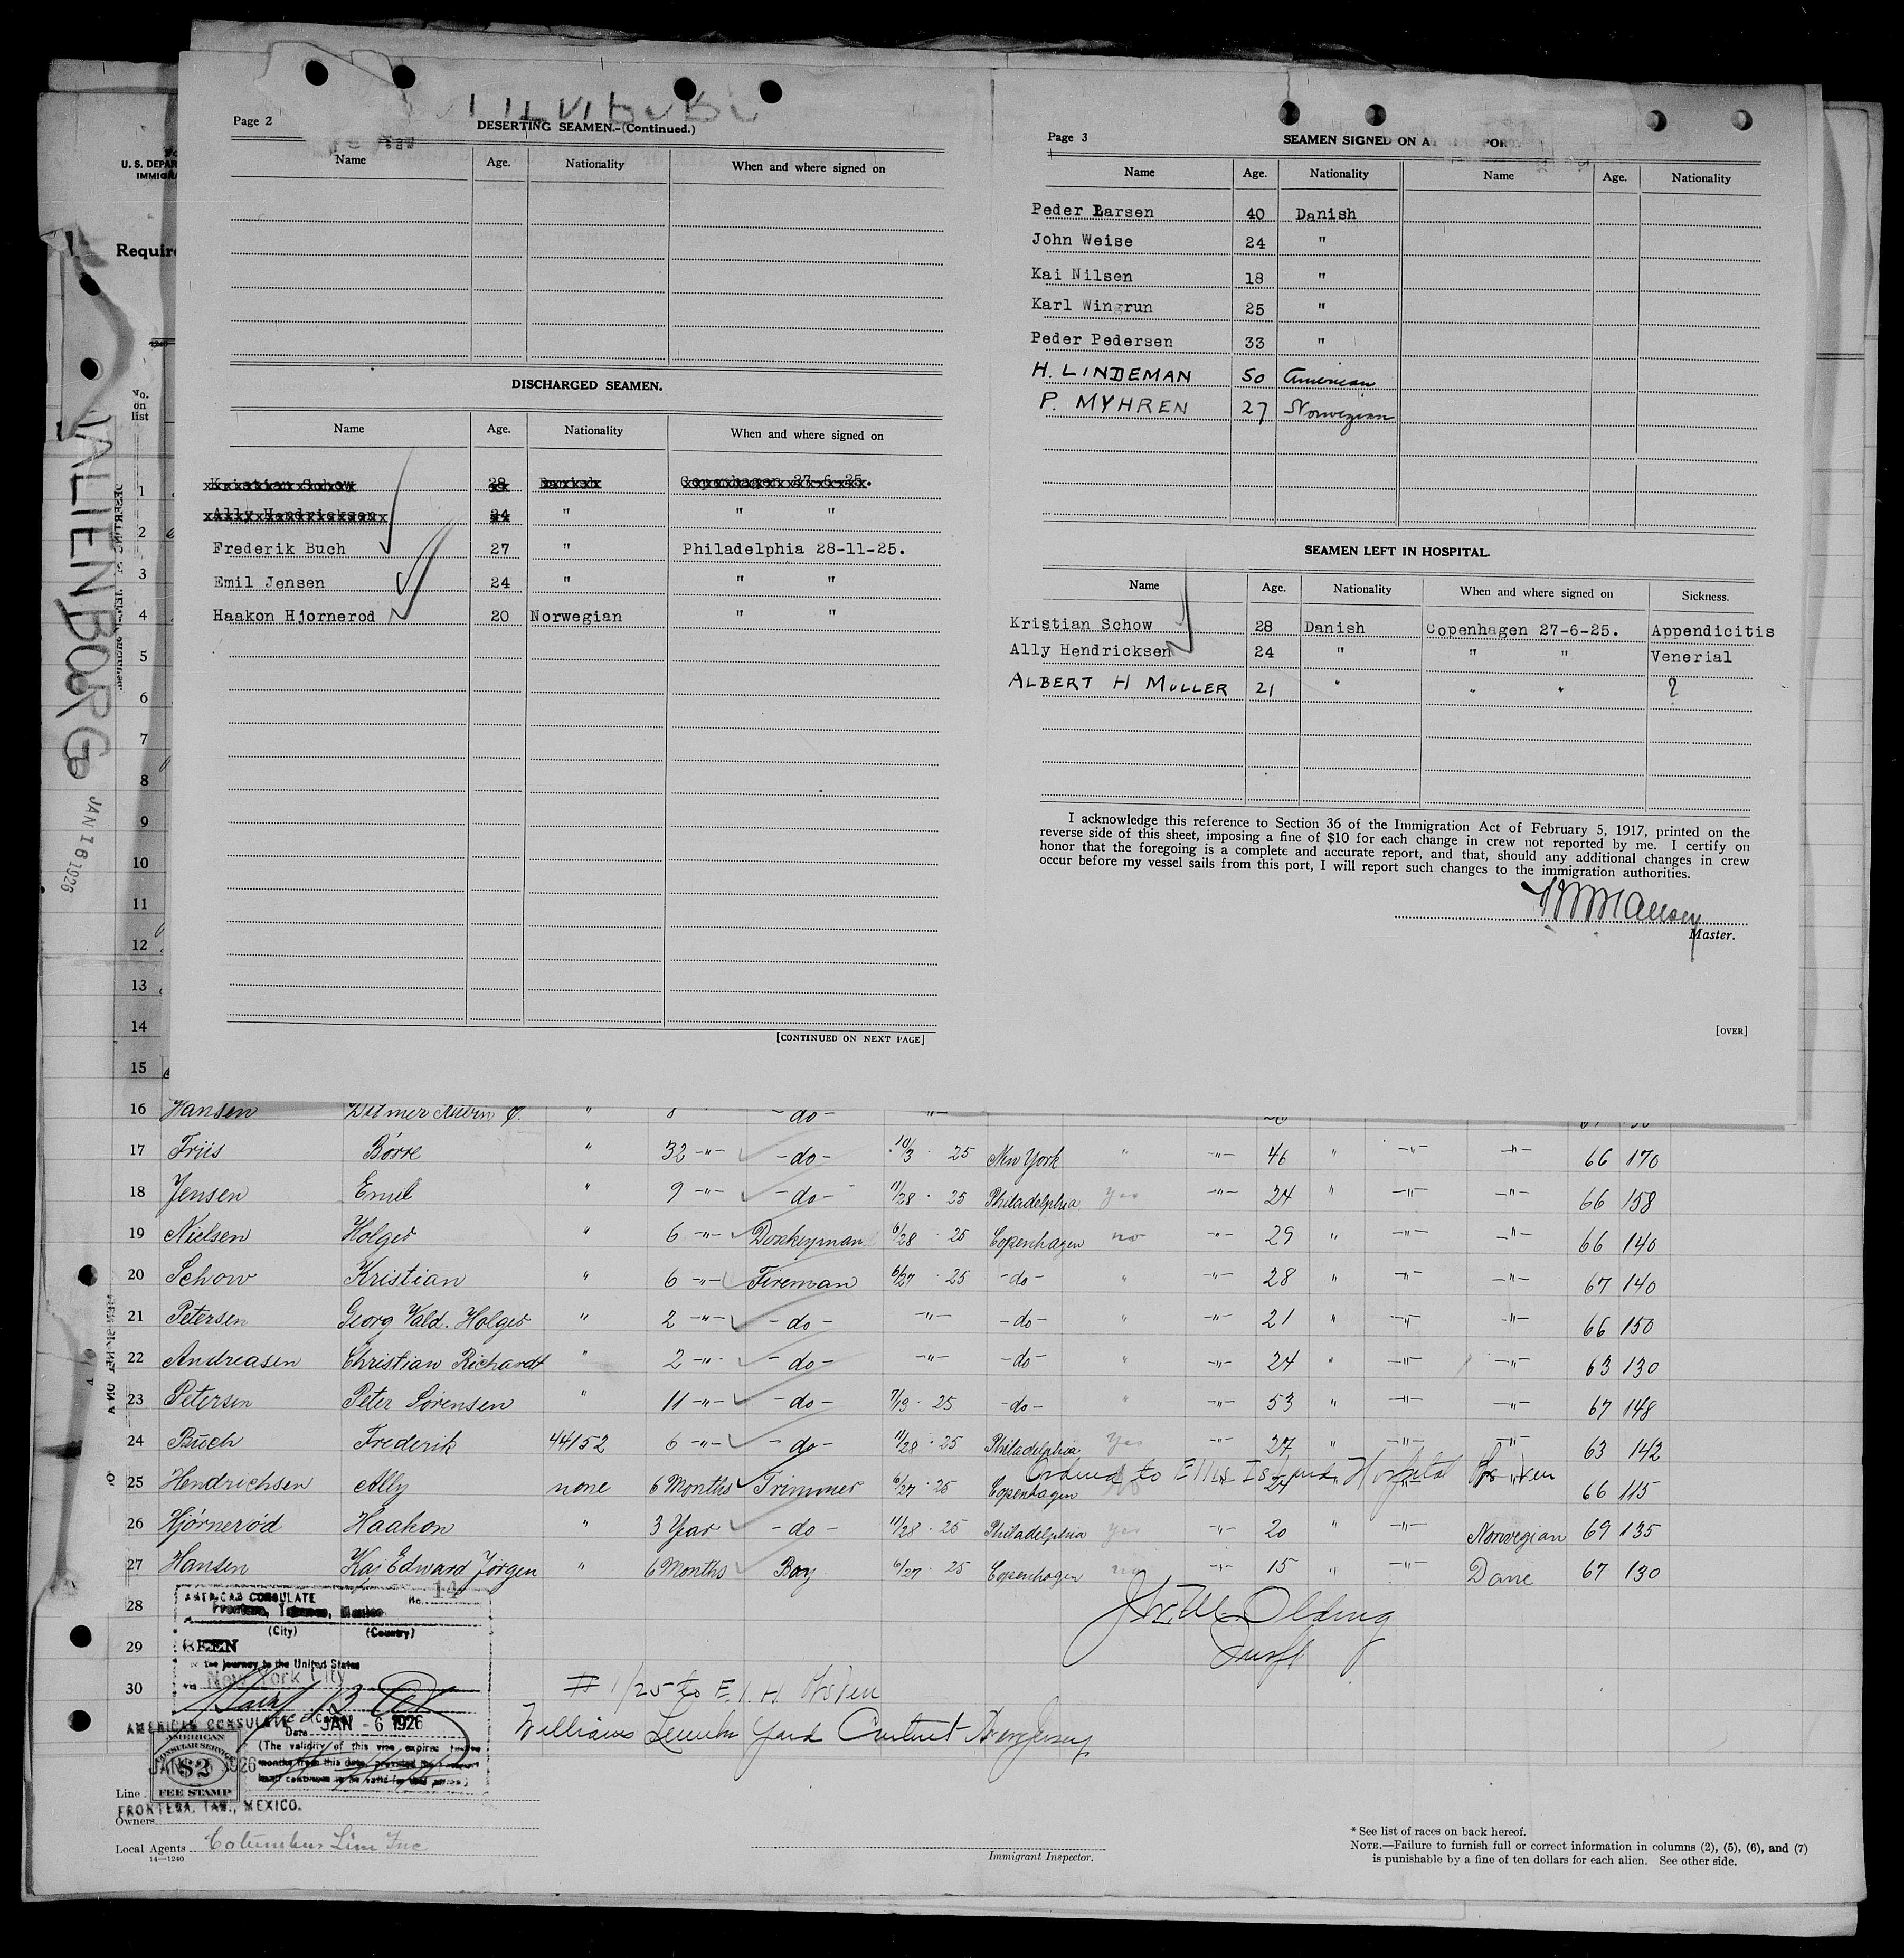 Page 2
DESERTING SEAMEN.-(Continued.)
Name Age. Nationality When and where signed on
DISCHARGED SEAMEN.
Name Age. Nationality When and where signed on
Kristian Schow 28 Danish Copenhagen 27-6-25.
Ally Hendricksen 24 " " "
Frederik Buch 27 " Philadelphia 28-11-25.
Emil Jensen 24 " " "
Haakon Hjornerod 20 Norwegian " "
[CONTINUED ON NEXT PAGE]
Page 3
SEAMEN SIGNED ON A PORT.
Name Age. Nationality Name Age. Nationality
Peder Larsen 40 Danish
John Weise 24 "
Kai Nilsen 18 "
Karl Wingrun 25 "
Peder Pedersen 33 "
H. LINDEMAN 50 American
P. MYHREN 27 Norwegian
SEAMEN LEFT IN HOSPITAL.
Name Age. Nationality When and where signed on Sickness.
Kristian Schow 28 Danish Copenhagen 27-6-25. Appendicitis
Ally Hendricksen 24 " " " Venerial
ALBERT H MULLER 21 " " " ?
I acknowledge this reference to Section 36 of the Immigration Act of February 5, 1917, printed on the
reverse side of this sheet, imposing a fine of $10 for each change in crew not reported by me. I certify on
honor that the foregoing is a complete and accurate report, and that, should any additional changes in crew
occur before my vessel sails from this port, I will report such changes to the immigration authorities.
Master.
[OVER]
U. S. DEPAR
IMMIGRA
Require
No.
on
list
JALIENBORG
JAN 16 1926
1
2
3
4
5
6
7
8
9
10
11
12
13
14
15
16 Hansen Ditmer " 8 -do- -"-
17 Friis Börre " 32 -"- -do- 10/3 · 25 New York " -"- 46 " -"- -"- 66 170
18 Jensen Emil " 9 -"- -do- 11/28 · 25 Philadelphia yes -"- 24 " -"- -"- 66 158
19 Nielsen Holger " 6 -"- Donkeyman 6/28 · 25 Copenhagen no -"- 29 " -"- -"- 66 140
20 Schow Kristian " 6 -"- Fireman 6/27 · 25 -do- " -"- 28 " -"- -"- 67 140
21 Petersen Georg Vald. Holger " 2 -"- -do- -"- -do- " -"- 21 " -"- -"- 66 150
22 Andreasen Christian Richardt " 2 -"- -do- -"- -do- " -"- 24 " -"- -"- 63 130
23 Petersen Peter Sørensen " 11 -"- -do- 7/13 · 25 -do- " -"- 53 " -"- -"- 67 148
24 Buch Frederik 44152 6 -"- -do- 11/28 · 25 Philadelphia Yes -"- 27 " -"- -"- 63 142
Ordered to Ellis Island Hospital
25 Hendrichsen Ally none 6 Months Trimmer 6/27 · 25 Copenhagen 24 " -"- 66 115
26 Hjørnerød Haakon " 3 Year -do- 11/28 · 25 Philadelphia yes -"- 20 " -"- Norwegian 69 135
27 Hansen Kaj Edward Jörgen " 6 Months Boy 6/27 · 25 Copenhagen no -"- 15 " -"- Dane 67 130
28
29
30
AMERICAN CONSULATE No. 14
Frontera, Tabasco, Mexico
(City) (Country)
SEEN
the journey to the United States
via New York City
AMERICAN CONSULATE
Date JAN - 6 1926
(The validity of this vise expires twelve
months from this date, provided the
AMERICAN
CONSULAR SERVICE
$2
FEE STAMP
JAN 1926
# 1/25 to E. I. H
Williams Yard
Line
FRONTERA, TAB., MEXICO.
Owners
Local Agents Columbus Line Inc
14—1240
Immigrant Inspector.
* See list of races on back hereof.
NOTE.—Failure to furnish full or correct information in columns (2), (5), (6), and (7)
is punishable by a fine of ten dollars for each alien. See other side.